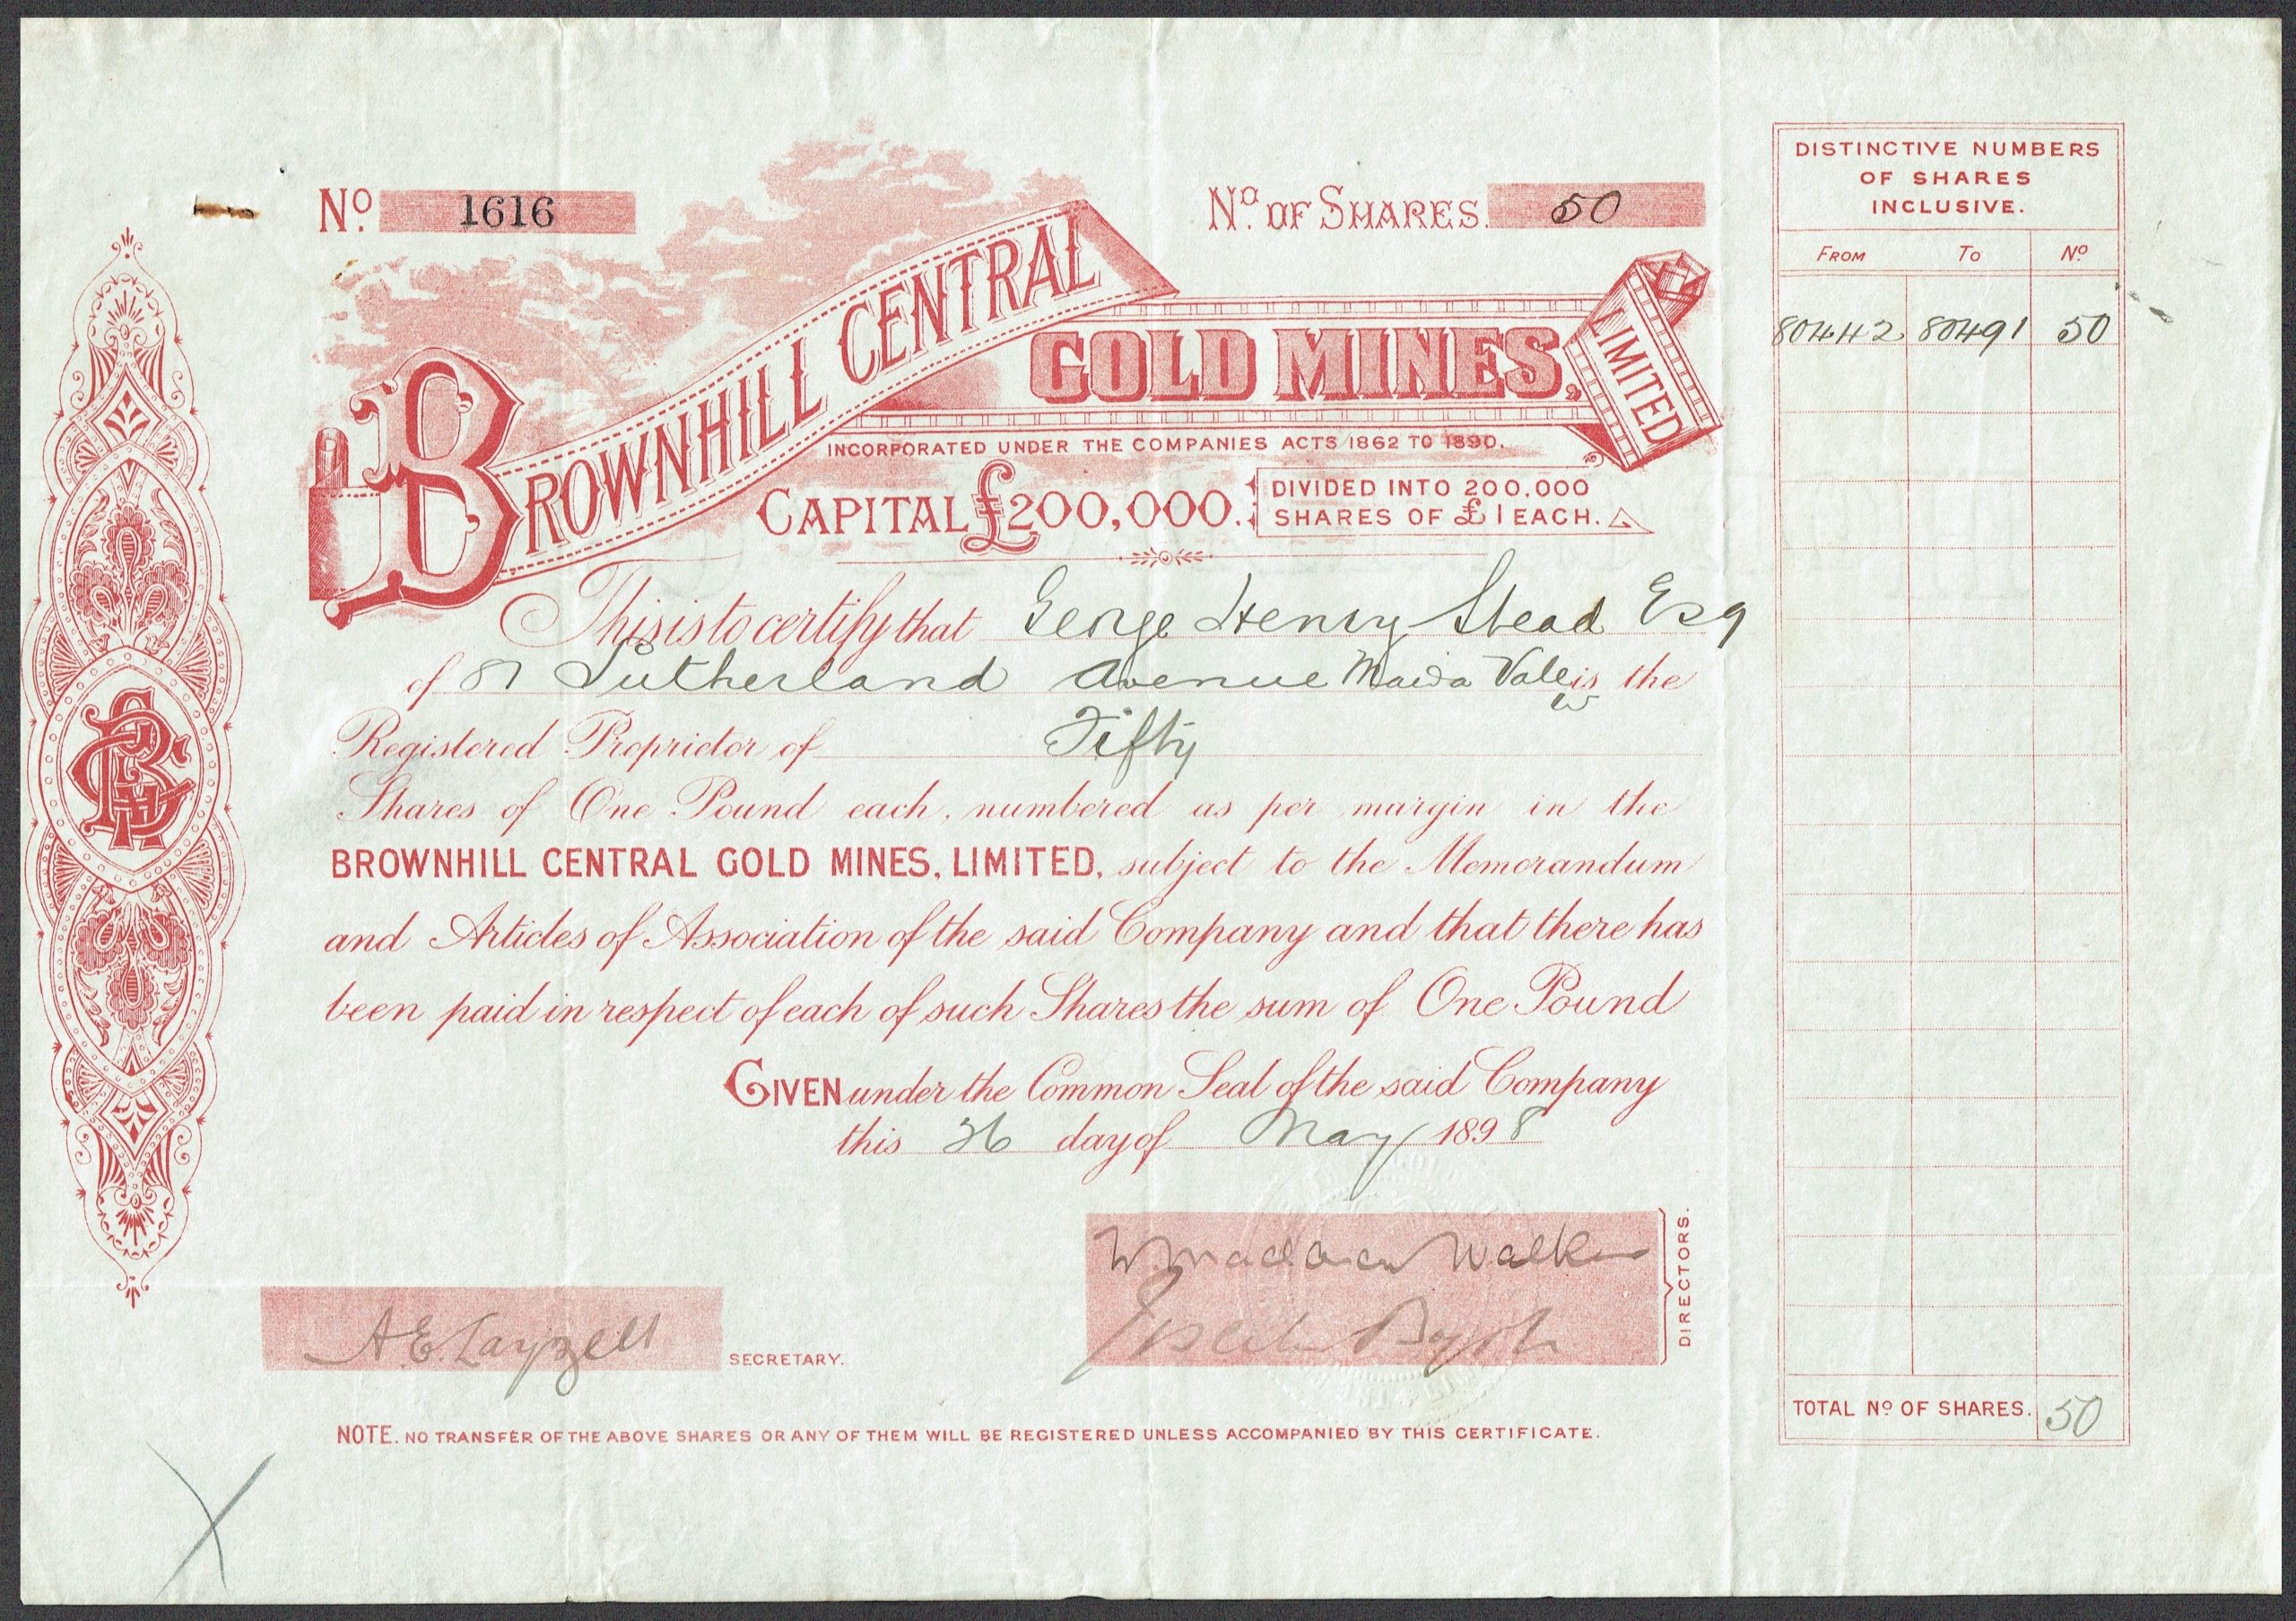 No. 1616
No. OF SHARES. 50
BROWNHILL CENTRAL
GOLD MINES,
LIMITED
INCORPORATED UNDER THE COMPANIES ACTS 1862 TO 1890.
CAPITAL £200,000.
DIVIDED INTO 200,000
SHARES OF £1 EACH.
This is to certify that George Henry Stead Esq
of 87 Sutherland Avenue Maida Vale is the
W
Registered Proprietor of Fifty
Shares of One Pound each, numbered as per margin in the
BROWNHILL CENTRAL GOLD MINES, LIMITED, subject to the Memorandum
and Articles of Association of the said Company and that there has
been paid in respect of each of such Shares the sum of One Pound
GIVEN under the Common Seal of the said Company
this 26 day of May 1898
Walker
DIRECTORS.
A.E. Layzell
SECRETARY.
NOTE. NO TRANSFER OF THE ABOVE SHARES OR ANY OF THEM WILL BE REGISTERED UNLESS ACCOMPANIED BY THIS CERTIFICATE.
DISTINCTIVE NUMBERS
OF SHARES
INCLUSIVE.
FROM TO No
80442 80491 50
TOTAL No OF SHARES. 50